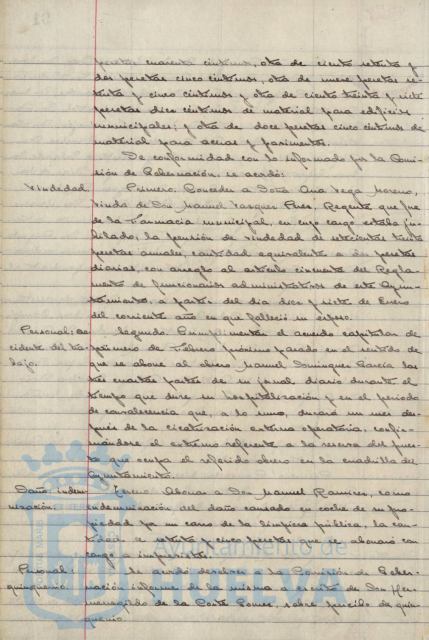 pesetas cuarenta céntimos, otra de ciento setenta y
dos pesetas cinco céntimos, otra de nueve pesetas se-
tenta y cinco céntimos y otra de ciento treinta y siete
pesetas diez céntimos de material para edificios
municipales; y otra de doce pesetas cinco céntimos de
material para aceras y pavimentos.
De conformidad con lo informado por la Comi-
sión de Gobernación, se acordó:
Viudedad. Primero. Conceder a Doña Ana Vega Moreno,
viuda de Don Manuel Vazquez Pérez, Regente que fue
de la Farmacia municipal, en cuyo cargo estaba ju-
bilado, la pensión de viudedad de setecientas treinta
pesetas anuales, cantidad equivalente a dos pesetas
diarias, con arreglo al artículo cincuenta del Regla-
mento de funcionarios administrativos de este Ayun-
tamiento, a partir del día diez y siete de Enero
del corriente año en que falleció su esposo.
Personal: ac- Segundo. Cumplimentar el acuerdo capitular de
cidente del tra- primero de Febrero próximo pasado en el sentido de
bajo. que se abone al obrero Manuel Dominguez García las
tres cuartas partes de su jornal diario durante el
tiempo que dure su hospitalización y en el periodo
de convalecencia que, a lo sumo, durará un mes des-
pués de la cicatrización externa operatoria, confir-
mándose el extremo referente a la reserva del pues-
to que ocupa el referido obrero en la cuadrilla del
Ayuntamiento.
Daño: indem- Tercero. Abonar a Don Manuel Ramirez, como
nización. indemnización del daño causado en coche de su pro-
piedad por un carro de la limpieza pública, la can-
tidad de setenta y cinco pesetas que se abonará con
cargo a imprevistos.
Personal: Se acordó devolver a la Comisión de Gober-
quinquenio. nación informe de la misma a escrito de Don Her-
menegildo de la Corte Gomez, sobre percibo de quin-
quenio.
Ayuntamiento de
HUELVA